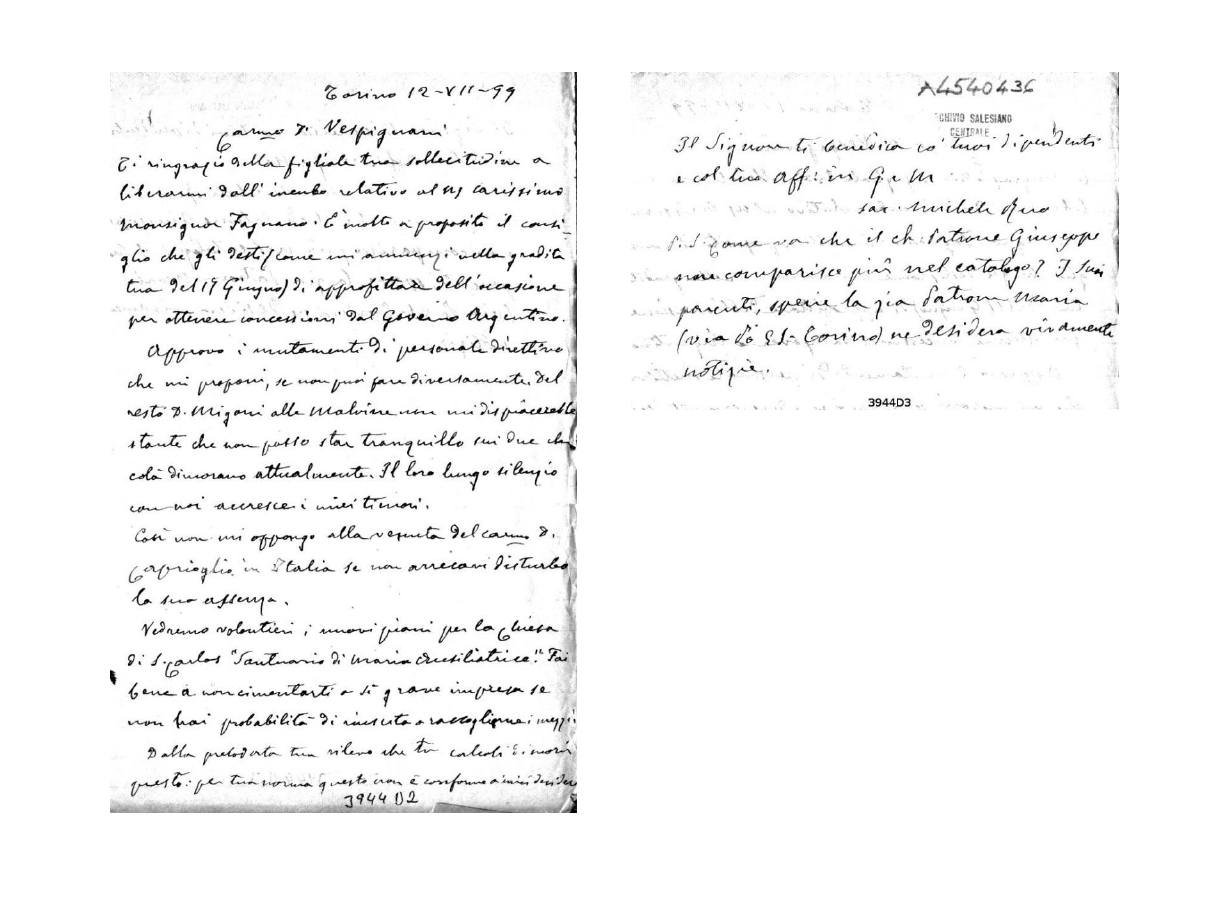 Torino 12-VII-99
Carmo D. Vespignani
Ti ringrazio della figliale tua sollecitudine a
liberarmi dall'incubo relativo al carissimo
Monsignor Fagnano. È molto a proposito il consi_
glio che gli desti (come mi annunzi nella gradita
tua del 17 Giugno) di approfittare dell'occasione
per ottenere concessioni dal Governo Argentino.
Approvo i mutamenti di personale direttivo
che mi proponi, se non puoi fare diversamente. Del
resto D. Migoni alle Malvine non mi dispiacerebbe
stante che non posso star tranquillo sui due che
colà dimorano attualmente. Il loro lungo silenzio
con noi accresce i miei timori.
Così non mi oppongo alla venuta del carmo D.
Caprioglio in Italia se non arrecavi disturbo
la sua assenza.
Vedremo volontieri i nuovi piani per la Chiesa
di S. Carlos "Santuario di Maria Ausiliatrice". Fai
bene a non cimentarti a sì grave impresa se
non hai probabilità di riuscita a raccoglierne i mezzi.
Dalla prelodata tua rilevo che tu calcoli di morir
presto: per tua norma questo non è conforme a' miei desideri
3944 D2
A4540436
CHIVIO SALESIANO
CENTRALE
Il Signore ti benedica co' tuoi dipendenti
e col tuo Aff. in G. e M
sac. Michele Rua
P.S. Come va che il ch. Patrone Giuseppe
non comparisce più nel catalogo? I suoi
parenti, specie la zia Patrone Maria
(via Po Torino) ne desidera vivamente
notizie.
3944D3